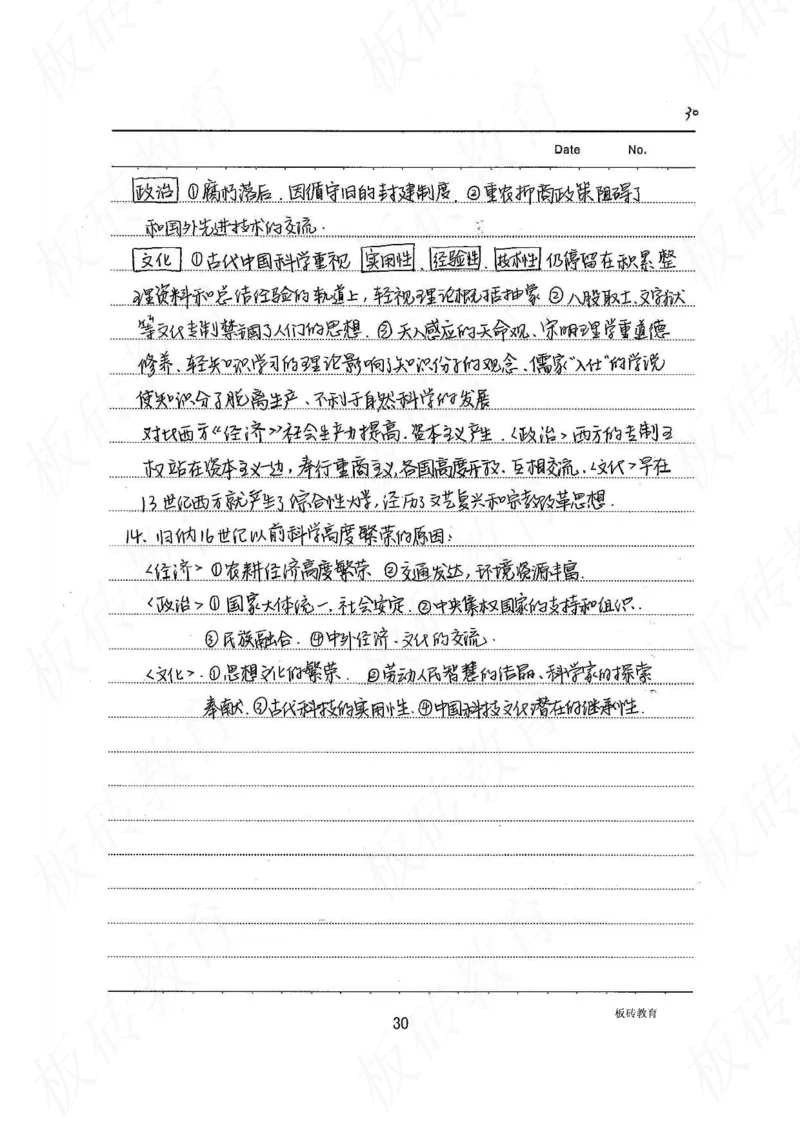 30
Date No.
政治 ①腐朽落后、因循守旧的封建制度. ②重农抑商政策阻碍了
和国外先进技术的交流.
文化 ①古代中国科学重视 实用性、经验性、技术性 仍停留在积累整
理资料和总结经验的轨道上，轻视理论概括抽象 ②八股取士、文字狱
等文化专制禁锢了人们的思想. ③天人感应的天命观、宋明理学重道德
修养、轻知识学习的理论影响了知识份子的观念、儒家"入仕"的学说
使知识分子脱离生产、不利于自然科学的发展
对比西方《经济》社会生产力提高.资本主义产生.〈政治〉西方的专制王
权站在资本主义一边，奉行重商主义,各国高度开放、互相交流.〈文化〉早在
13世纪西方就产生了综合性大学,经历了文艺复兴和宗教改革思想.
14、归纳16世纪以前科学高度繁荣的原因:
〈经济〉①农耕经济高度繁荣 ②交通发达，环境资源丰富.
〈政治〉①国家大体统一.社会安定.②中央集权国家的支持和组织.
③民族融合.④中外经济、文化的交流.
〈文化〉.①思想文化的繁荣. ②劳动人民智慧的结晶、科学家的探索
奉献.③古代科技的实用性.④中国科技文化潜在的继承性.
30
板砖教育